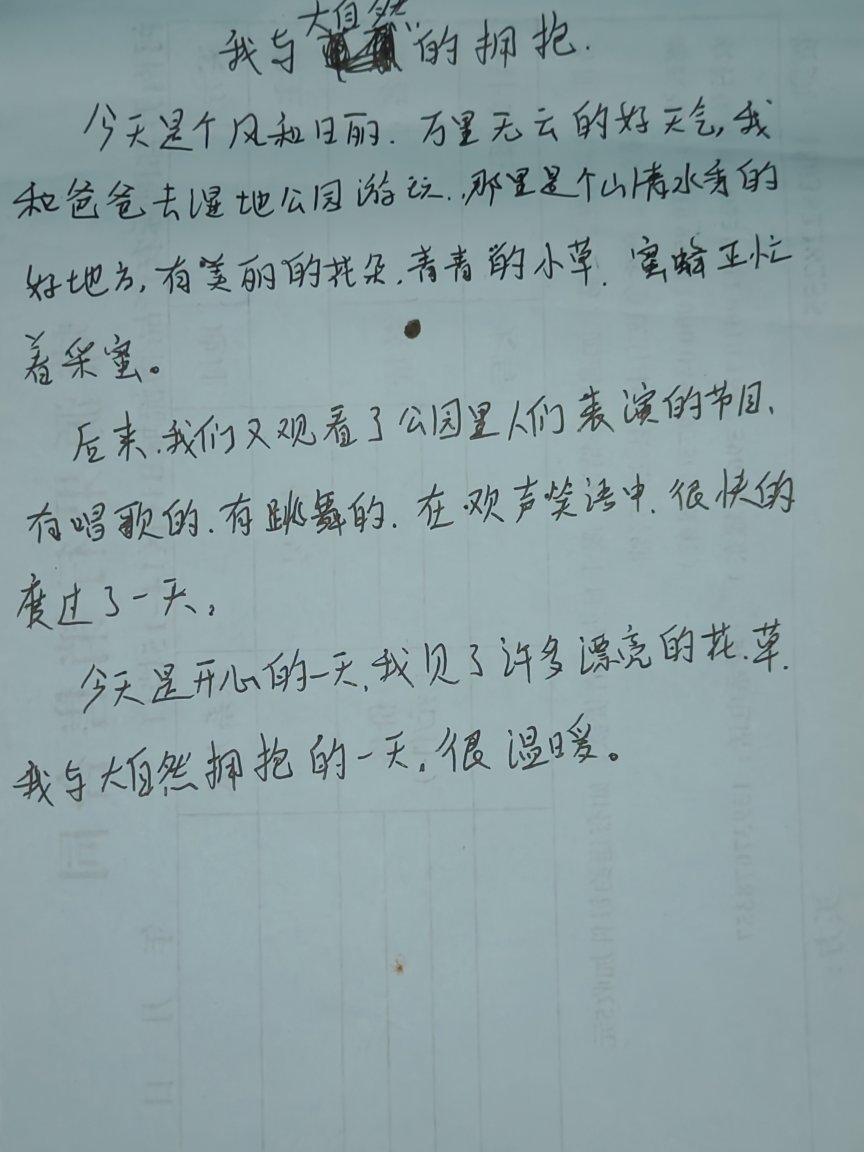 我与大自然的拥抱.
今天是个风和日丽.万里无云的好天气,我
和爸爸去湿地公园游玩.,那里是个山清水秀的
好地方,有美丽的花朵.青青的小草.蜜蜂正忙
着采蜜。
后来,我们又观看了公园里人们表演的节目、
有唱歌的.有跳舞的.在欢声笑语中.很快的
度过了一天。
今天是开心的一天,我见了许多漂亮的花.草.
我与大自然拥抱的一天,很温暖。